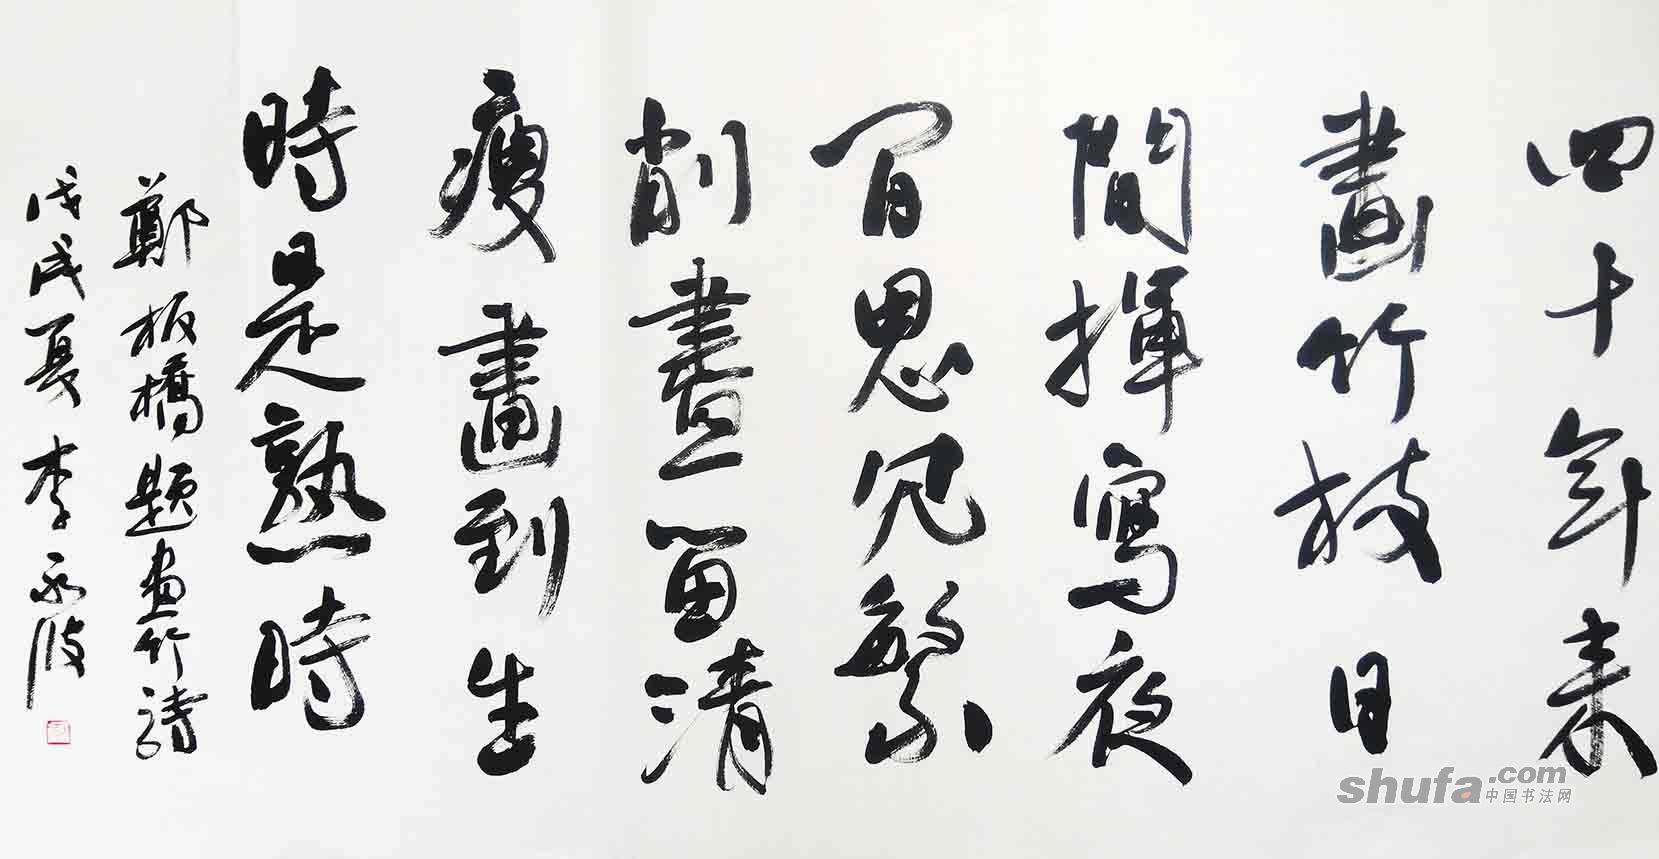 四十年来
畫竹枝日
間揮寫夜
間思冗繁
削盡留清
瘦畫到生
時是熟時
鄭板橋題畫竹詩
戊戌夏李永波
shufa.com
中国书法网